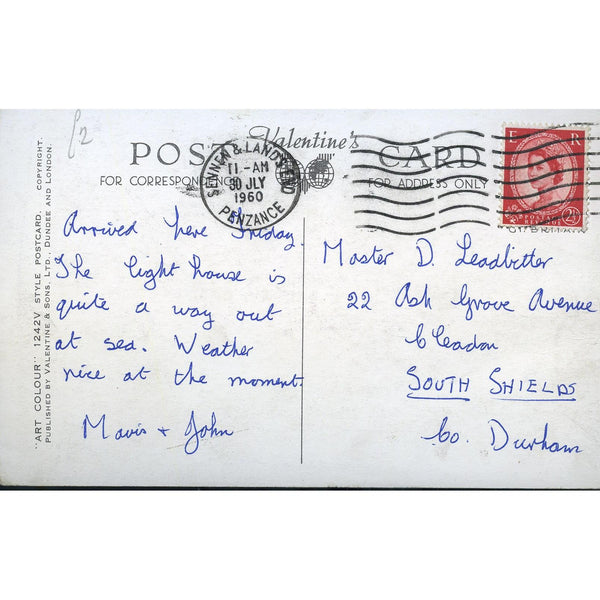 £2
POST Valentine's CARD
FOR CORRESPONDENCE
FOR ADDRESS ONLY
SENNEN & LANDS END
11-AM
30 JLY
1960
PENZANCE
E R
2½
Arrived here Friday.
The light house is
quite a way out
at sea. Weather
nice at the moment.
Mavis + John
Master D. Leadbitter
22 Ash Grove Avenue
Cleadon
SOUTH SHIELDS
Co. Durham
"ART COLOUR" 1242V STYLE POSTCARD. COPYRIGHT.
PUBLISHED BY VALENTINE & SONS, LTD., DUNDEE AND LONDON.